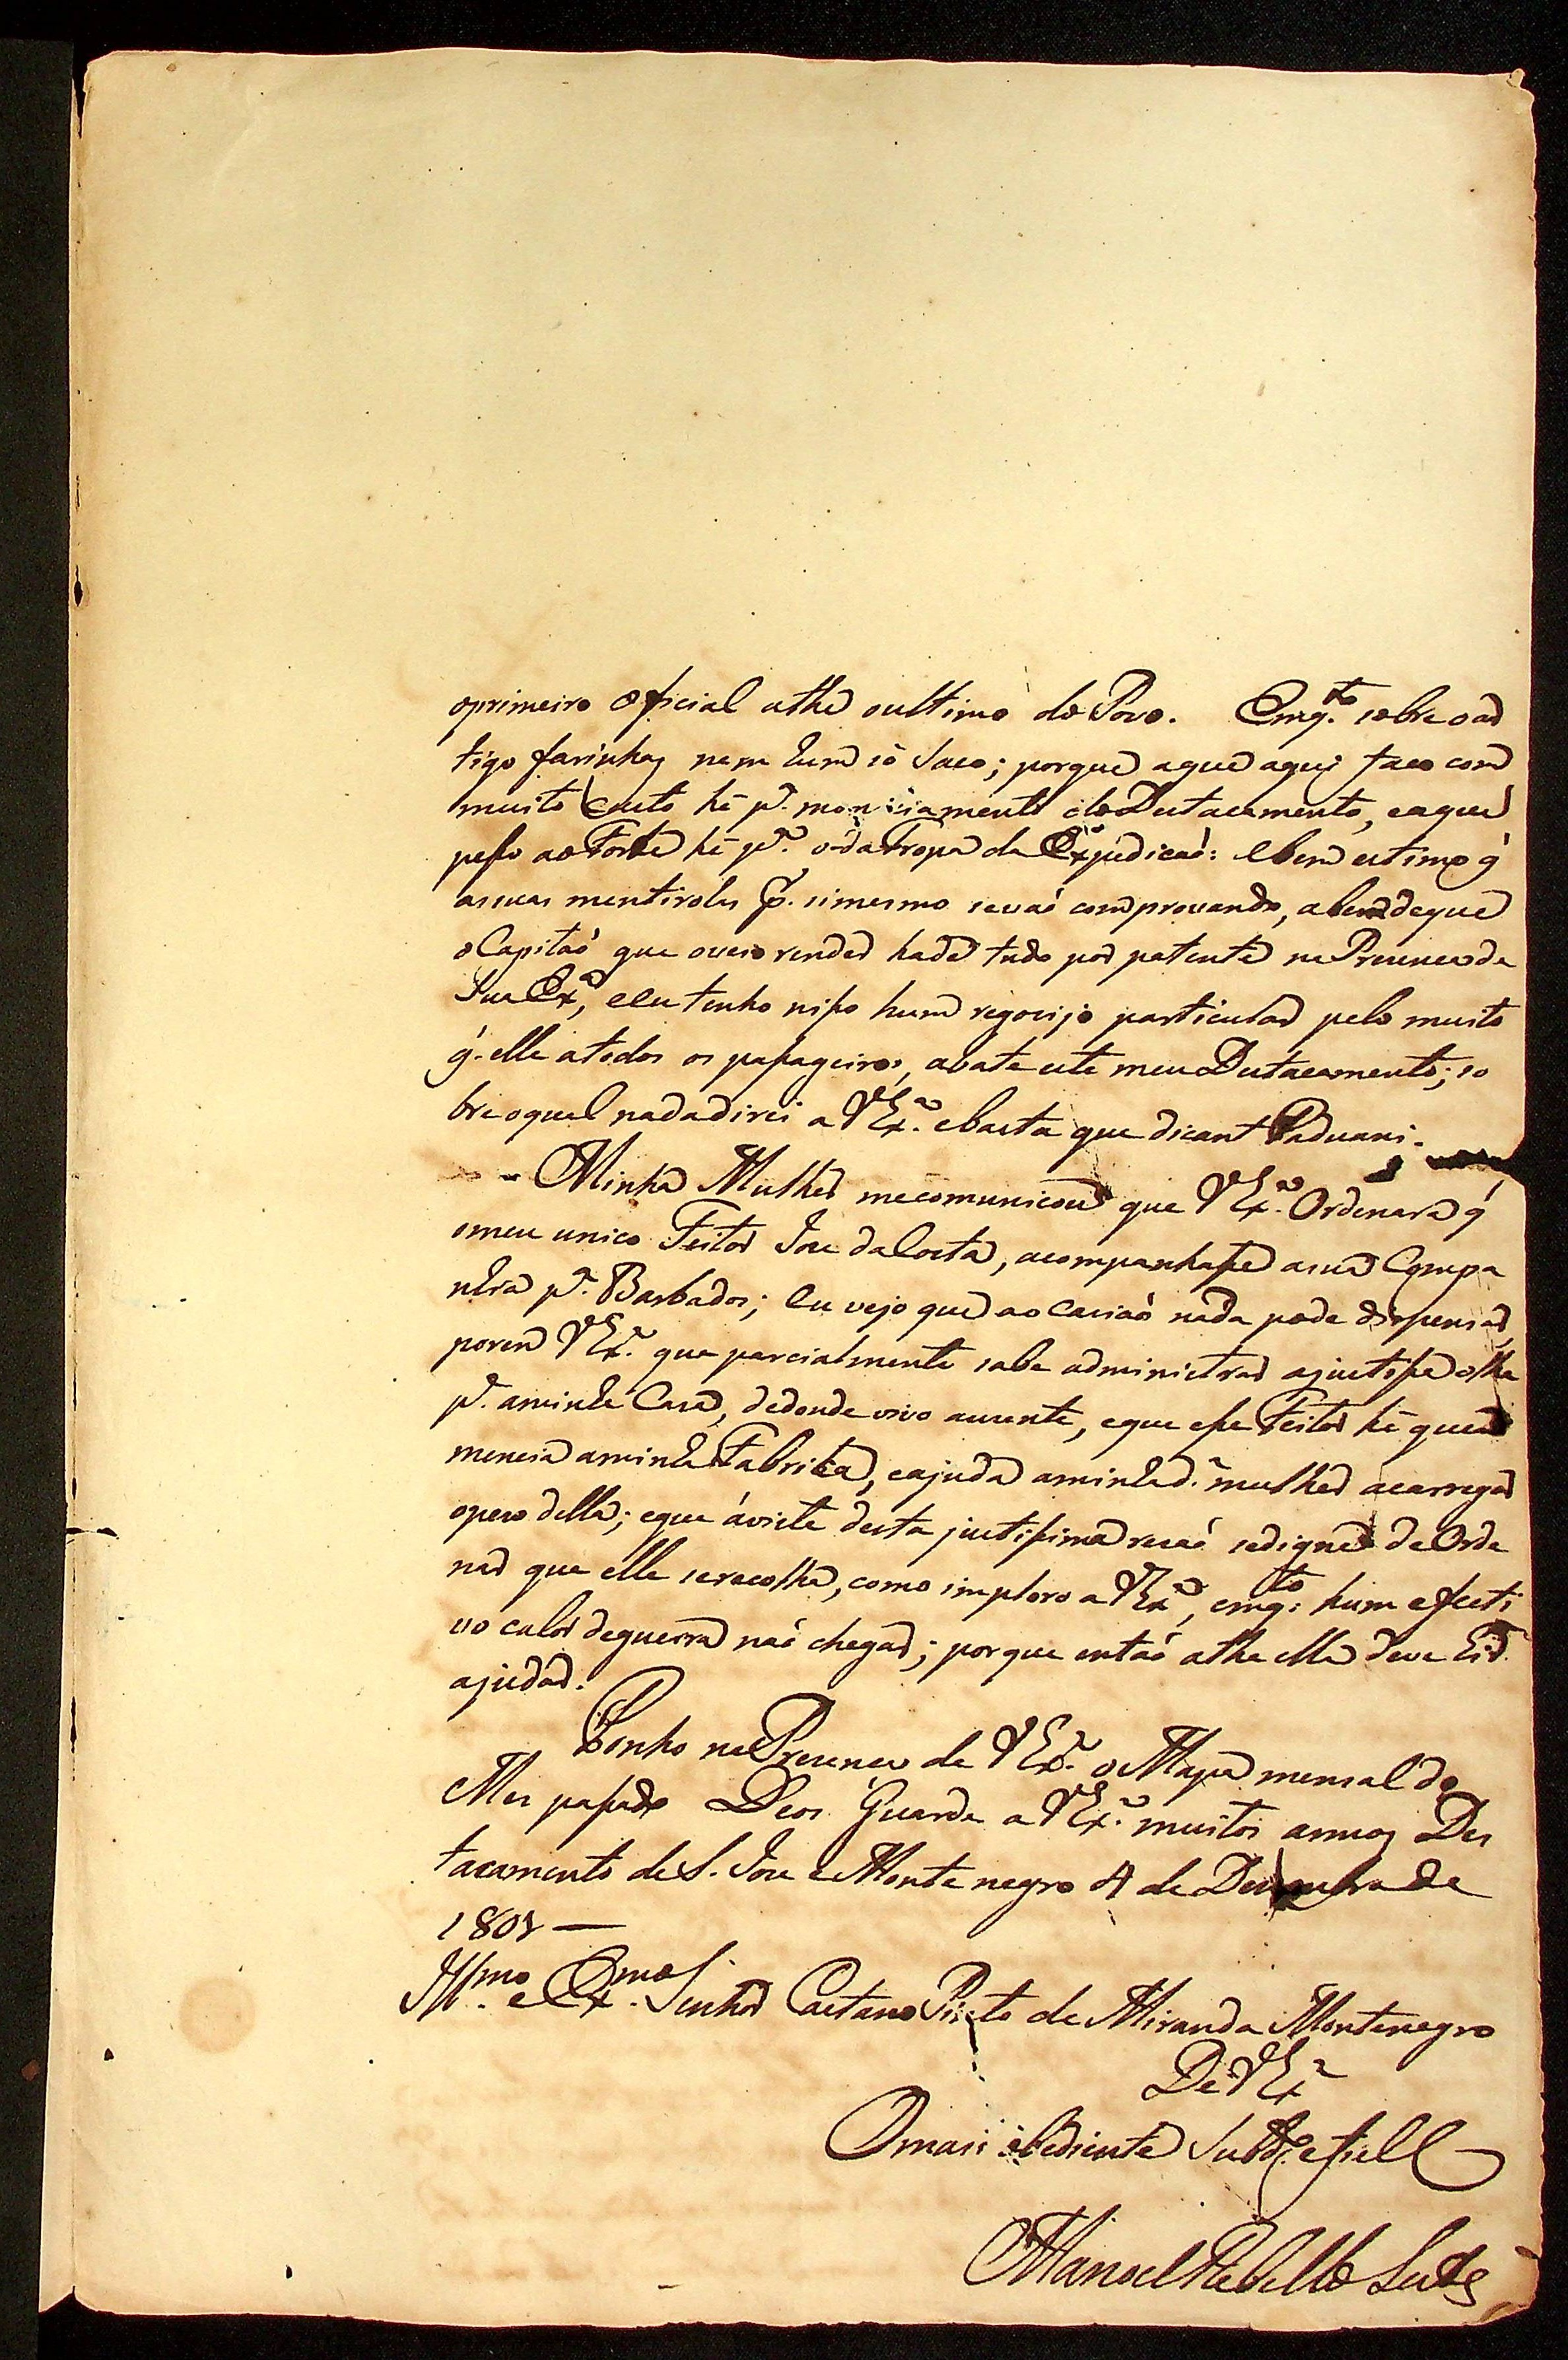 oprimeiro oficial athe oultimo do Povo. Emq.to sobre oar
tigo farinhas nem hum só Saco; porque aque aqui faço com
muito custo hé p.a monisiamento do Destacamento, eaque
pesso ao Forte hé p.a oda Tropa da Expediçaõ: Ebem estimo q'
assuas mentirolas p.r simesmo sevaõ comprovando, alemdeque
oCapitaõ que oveio render hade tudo por patente na Presença de
Sua Ex.a, eeu tenho nisso hum regosijo particular pelo muito
q. elle atodos os passageiros, abate este meu Destacamento; so
bre oqual nadadirei a VEx.a ebasta que dicant Paduani.
Minha Mulher mecomunicou que VEx.a Ordenara q'
omeu unico Feitor Joze daCosta, acompanhasse asua Compa
nhia p.a Barbados; Eu vejo que ao Caciaõ nada pode dispensar,
porem VEx.a que parcialmente sabe administrar ajustissa olhe
p.a aminha Casa, dedonde vivo ausente, eque esse Feitor hé quem
meneia aminha Fabrica, eajuda aminhad.a mulher acarregar
opezo della; eque ávista desta justissima rezaõ sedigne de Orde
nar que elle serecolha, como imploro a VEx.a, emq.to hum efecti
vo calor deguerra naõ chegar; porque entaõ athe ella deve hir
ajudar.
Ponho na Presença de VEx.a o Mapa mensal do
Mes passado Deos Guarde a VEx.a muitos annos Des
tacamento de S. Joze e Monte negro 4 de de
180
Ill.mo e Ex.mo Senhor Caetano Pinto de Miranda Montenegro
De VEx.a
Omais obediente Subd.o efiell
Manoel Rebello Leite